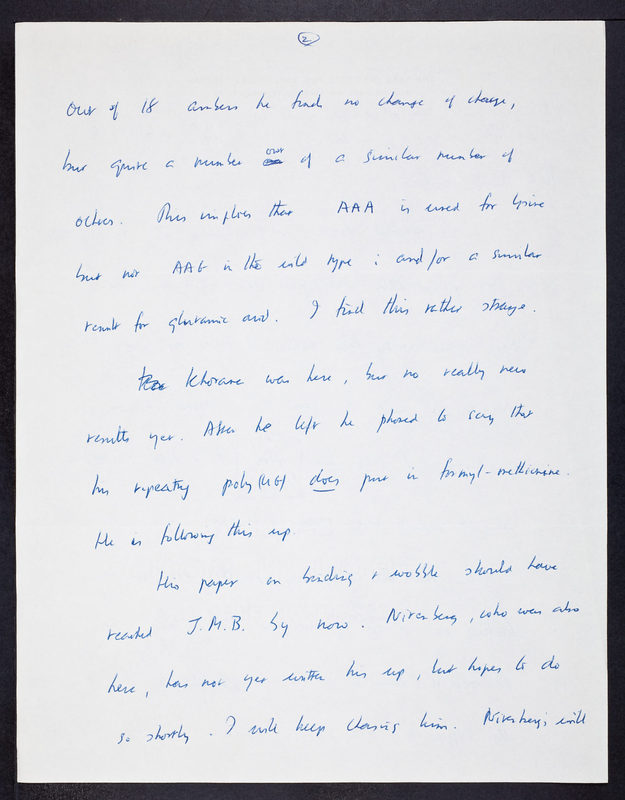 2
Out of 18 ambers he finds no change of charge,
but quite a number out of a similar number of
ochres. This implies that AAA is used for lysine
but not AAG in the wild type; and/or a similar
result for glutamic acid. I find this rather strange.
Khorana was here, but no really new
results yet. After he left he phoned to say that
his repeating poly (UG) does put in formyl-methionine.
He is following this up.
His paper on binding & wobble should have
reached J.M.B. by now. Nirenberg, who was also
here, has not yet written his up, but hopes to do
so shortly. I will keep chasing him. Nirenberg's will